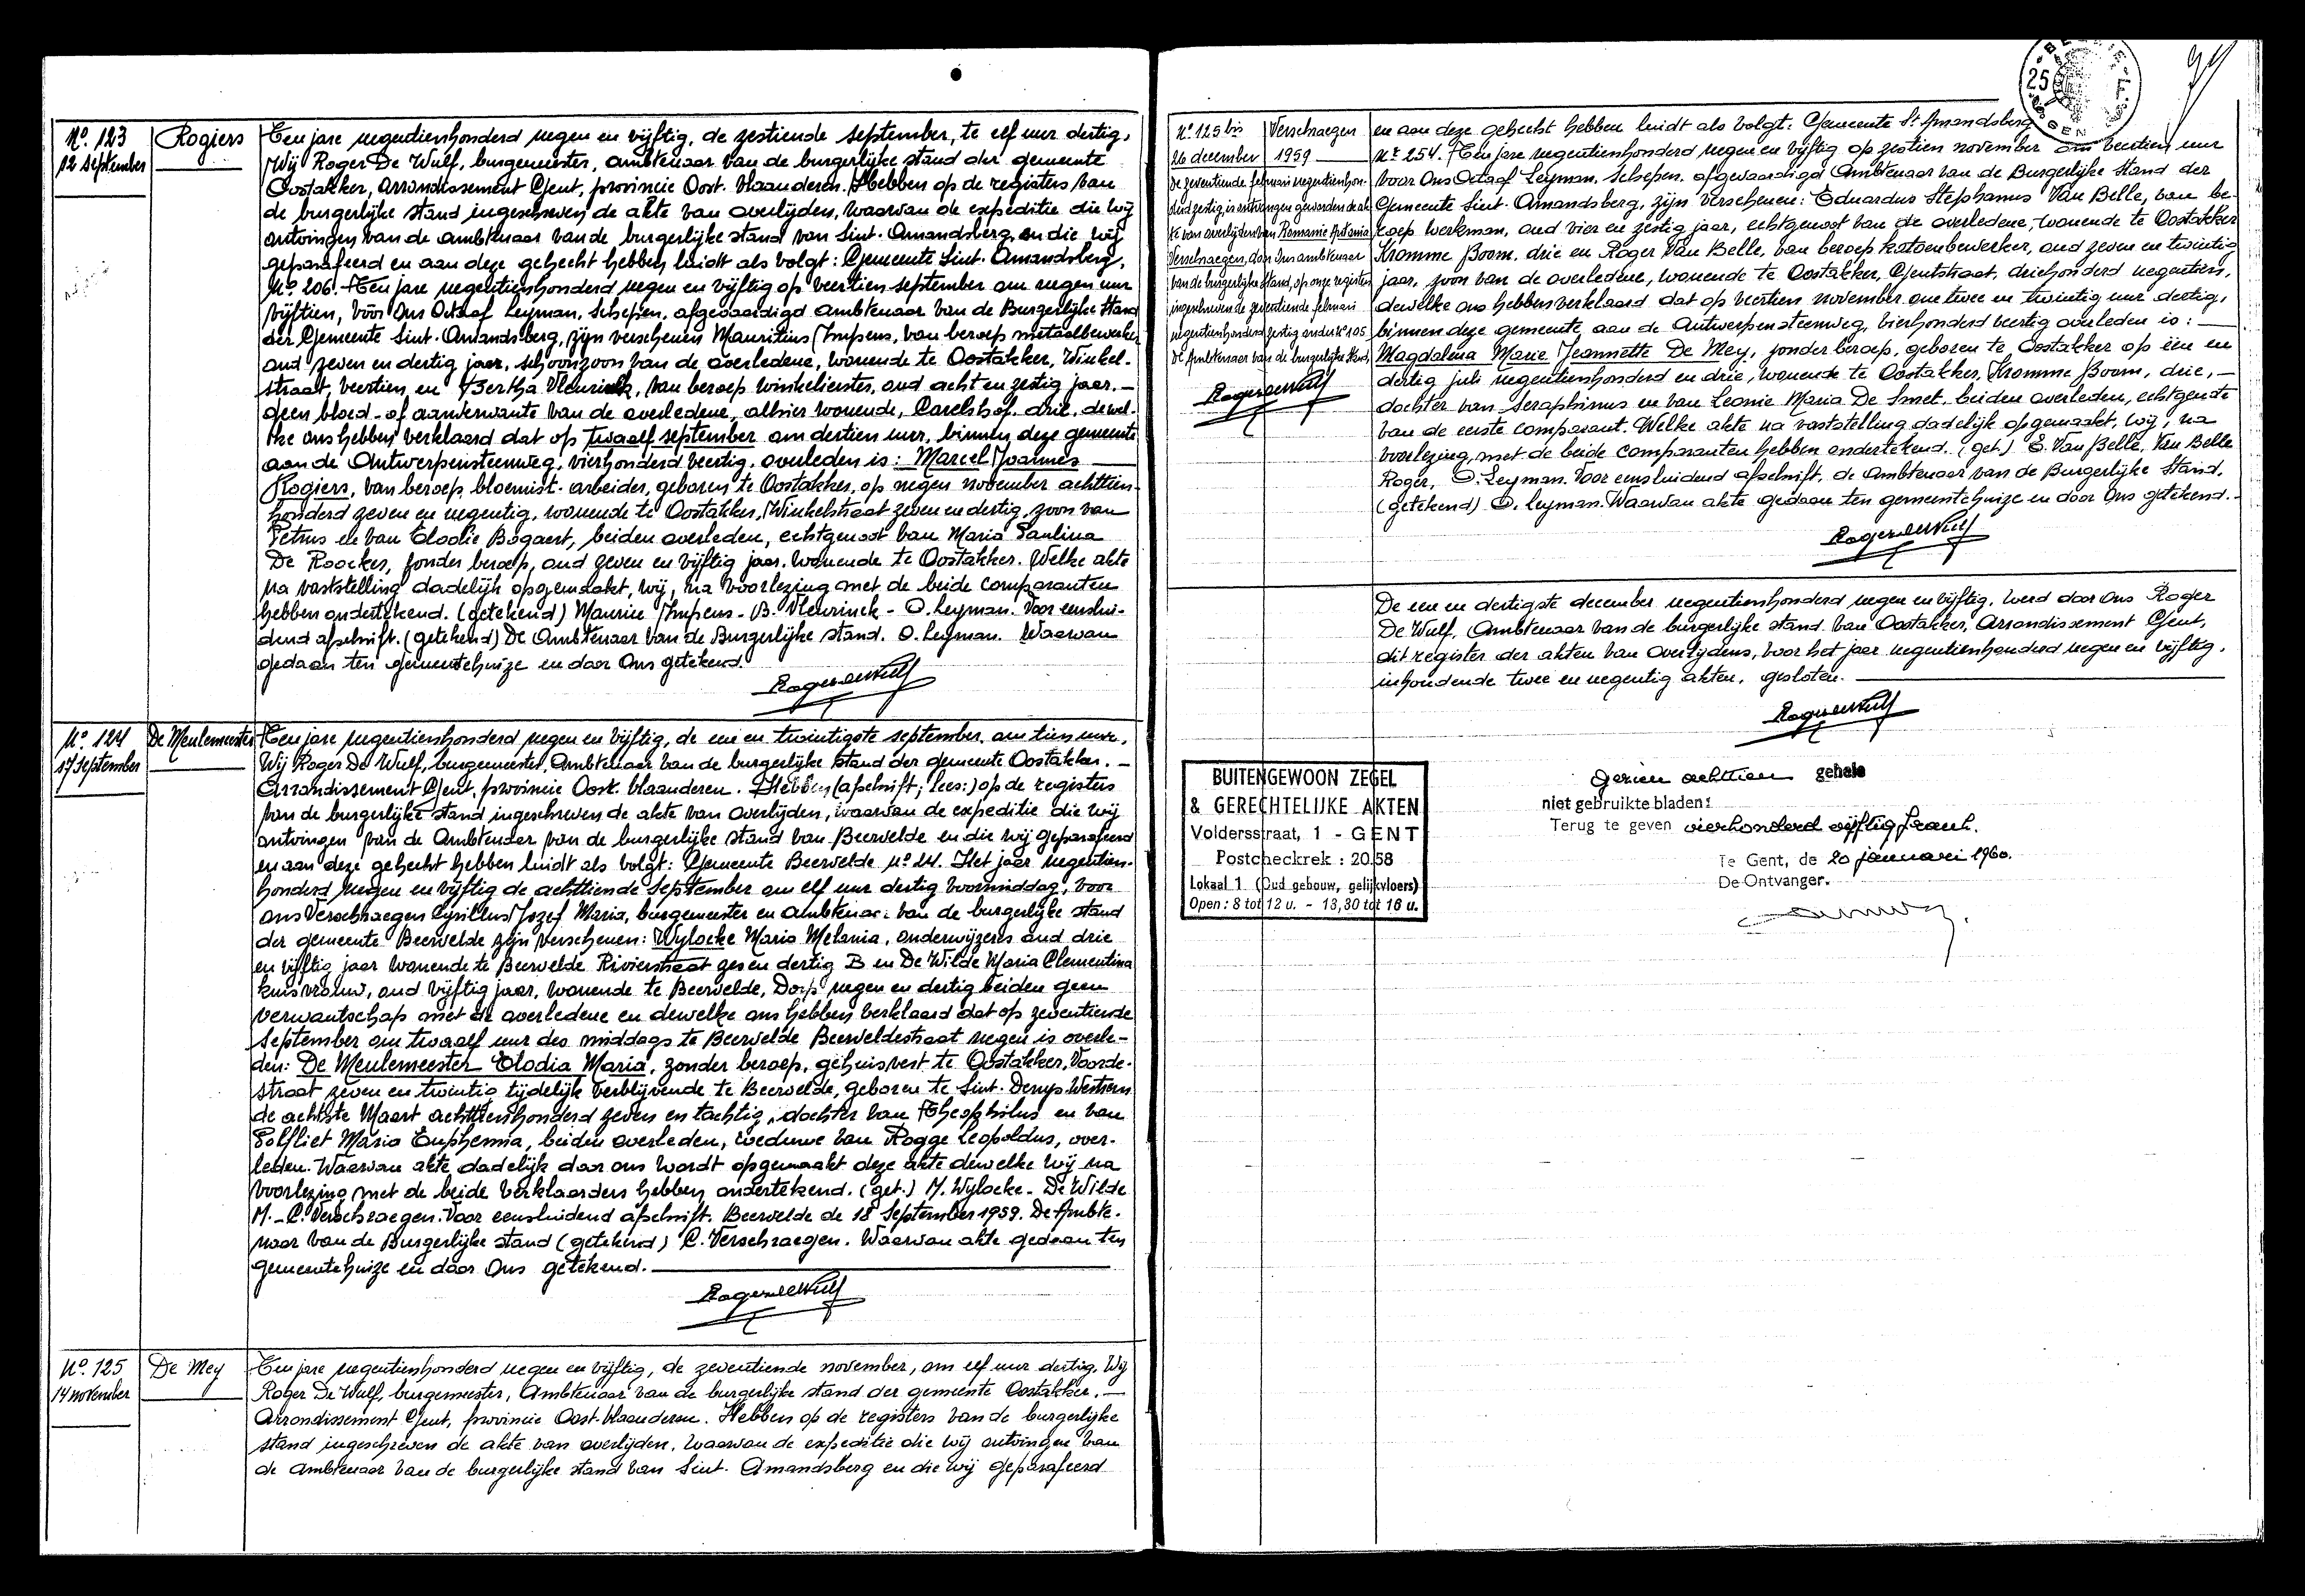 Nº 123
12 september
Rogiers
Ten jare negentienhonderd negen en vijftig, de zestiende september, te elf uur dertig,
Wij Roger De Wulf, burgemeester, ambtenaar van de burgerlijke stand der gemeente
Oostakker, Arrondissement Gent, provincie Oost-Vlaanderen. Hebben op de registers van
de burgerlijke stand ingeschreven de akte van overlijden, waarvan de expeditie die wij
ontvingen van de ambtenaar van de burgerlijke stand van Sint-Amandsberg en die wij
geparafeerd en aan deze gehecht hebben luidt als volgt: Gemeente Sint-Amandsberg.
Nº 206. Ten jare negentienhonderd negen en vijftig op veertien september om negen uur
vijftien, vóór Ons Octaaf Leyman, Schepen, afgevaardigd Ambtenaar van de Burgerlijke Stand
der Gemeente Sint-Amandsberg, zijn verschenen Mauritius Impens, van beroep metaalbewerker
oud zeven en dertig jaar, schoonzoon van de overledene, wonende te Oostakker, Winkel-
straat, veertien, en Bertha Vleurinck, van beroep winkelierster, oud acht en zestig jaar. —
geen bloed- of aanverwante van de overledene, alhier wonende, Carelshof, drie, dewel-
ke ons hebben verklaard dat op twaalf september om dertien uur, binnen deze gemeente
aan de Antwerpensteenweg, vierhonderd veertig, overleden is: Marcel Joannes
Rogiers, van beroep bloemist-arbeider, geboren te Oostakker, op negen november achttien-
honderd zeven en negentig, wonende te Oostakker, Winkelstraat zeven en dertig, zoon van
Petrus en van Elodie Bogaert, beiden overleden, echtgenoot van Maria Paulina
De Roocker, zonder beroep, oud zeven en vijftig jaar, wonende te Oostakker. Welke akte
na vaststelling dadelijk opgemaakt, wij, na voorlezing met de beide comparanten
hebben ondertekend. (getekend) Maurice Impens - B. Vleurinck - O. Leyman. Voor eenslui-
dend afschrift. (getekend) De Ambtenaar van de Burgerlijke stand. O. Leyman. Waarvan
gedaan ten gemeentehuize en door Ons getekend.
Roger de Wulf
Nº 124
17 September
De Meulemeester
Ten jare negentienhonderd negen en vijftig, de een en twintigste september, om tien uur,
Wij Roger De Wulf, burgemeester, Ambtenaar van de burgerlijke stand der gemeente Oostakker. —
Arrondissement Gent, provincie Oost-Vlaanderen. Hebben (afschrift; lees:) op de registers
van de burgerlijke stand ingeschreven de akte van overlijden, waarvan de expeditie die wij
ontvingen van de Ambtenaar van de burgerlijke stand van Beervelde en die wij geparafeerd
en aan deze gehecht hebben luidt als volgt: Gemeente Beervelde nº 24. Het jaar negentien-
honderd negen en vijftig de achttiende September om elf uur dertig voormiddag, voor
ons Verschraegen Cyrillus Jozef Maria, burgemeester en ambtenaar van de burgerlijke stand
der gemeente Beervelde zijn verschenen: Wylocke Maria Melania, onderwijzeres oud drie
en vijftig jaar wonende te Beervelde Rivierstraat zes en dertig B en De Wilde Maria Clementina
huisvrouw, oud vijftig jaar, wonende te Beervelde, Dorp negen en dertig beiden geen
verwantschap met de overledene en dewelke ons hebben verklaard dat op zeventiende
September om twaalf uur des middags te Beervelde Beerveldestraat negen is overle-
den: De Meulemeester Elodia Maria, zonder beroep, gehuisvest te Oostakker, Voorde-
straat zeven en twintig tijdelijk verblijvende te Beervelde, geboren te Sint-Denys-Westrem
de achtste Maart achttienhonderd zeven en tachtig, dochter van Theophilus en van
Polfliet Maria Euphemia, beiden overleden, weduwe van Rogge Leopoldus, over-
leden. Waarvan akte dadelijk door ons wordt opgemaakt deze akte dewelke wij na
voorlezing met de beide verklaarders hebben ondertekend. (get.) M. Wylocke - De Wilde
M. - C. Verschraegen. Voor eensluidend afschrift. Beervelde de 18 September 1959. De Ambte-
naar van de Burgerlijke stand (getekend) C. Verschraegen. Waarvan akte gedaan ten
gemeentehuize en door Ons getekend.
Roger de Wulf
Nº 125
14 november
De Mey
Ten jare negentienhonderd negen en vijftig, de zeventiende november, om elf uur dertig, Wij
Roger De Wulf, burgemeester, Ambtenaar van de burgerlijke stand der gemeente Oostakker. —
Arrondissement Gent, provincie Oost-Vlaanderen. Hebben op de registers van de burgerlijke
stand ingeschreven de akte van overlijden, waarvan de expeditie die wij ontvingen van
de ambtenaar van de burgerlijke stand van Sint-Amandsberg en die wij geparafeerd
25
en aan deze gehecht hebben luidt als volgt: Gemeente St Amandsberg
Nr 254. Ten jare negentienhonderd negen en vijftig op zestien november om veertien uur
voor Ons Octaaf Leyman, Schepen, afgevaardigd Ambtenaar van de Burgerlijke Stand der
Gemeente Sint-Amandsberg, zijn verschenen: Eduardus Stephanus Van Belle, van be-
roep werkman, oud vier en zestig jaar, echtgenoot van de overledene, wonende te Oostakker
Kromme Boom, drie en Roger Van Belle, van beroep katoenbewerker, oud zeven en twintig
jaar, zoon van de overledene, wonende te Oostakker, Gentstraat, driehonderd negentien,
dewelke ons hebben verklaard dat op veertien november om twee en twintig uur dertig,
binnen deze gemeente aan de Antwerpensteenweg, vierhonderd veertig overleden is: —
Magdalena Marie Jeannette De Mey, zonder beroep, geboren te Oostakker op één en
dertig juli negentienhonderd en drie, wonende te Oostakker, Kromme Boom, drie, —
dochter van Seraphinus en van Leonie Maria De Smet, beiden overleden, echtgenote
van de eerste comparant. Welke akte na vaststelling dadelijk opgemaakt, wij, na
voorlezing, met de beide comparanten hebben ondertekend. (get.) E. Van Belle, Van Belle
Roger, O. Leyman. Voor eensluidend afschrift, de Ambtenaar van de Burgerlijke Stand,
(getekend) O. Leyman. Waarvan akte gedaan ten gemeentehuize en door Ons getekend.
Roger de Wulf
Nº 125 bis
26 december
Verschraegen
1959
De zeventiende februari negentienhon-
derd zestig, is ontvangen geworden de ak-
te van overlijden van Romanie Antonia
Verschraegen, door Ons ambtenaar
van de burgerlijke stand, op onze registers
ingeschreven de zeventiende februari
negentienhonderd zestig onder Nº 105
De Ambtenaar van de burgerlijke stand,
Roger de Wulf
De een en dertigste december negentienhonderd negen en vijftig, werd door Ons Roger
De Wulf, Ambtenaar van de burgerlijke stand van Oostakker, Arrondissement Gent,
dit register der akten van Overlijdens, voor het jaar negentienhonderd negen en vijftig,
inhoudende twee en negentig akten, gesloten.
Roger de Wulf
BUITENGEWOON ZEGEL
& GERECHTELIJKE AKTEN
Voldersstraat, 1 - GENT
Postcheckrek : 20.58
Lokaal 1 (Oud gebouw, gelijkvloers)
Open : 8 tot 12 u. - 13,30 tot 16 u.
Gezien achttien gehele
niet gebruikte bladen:
Terug te geven vierhonderd vijftig frank.
Te Gent, de 20 januari 1960.
De Ontvanger.